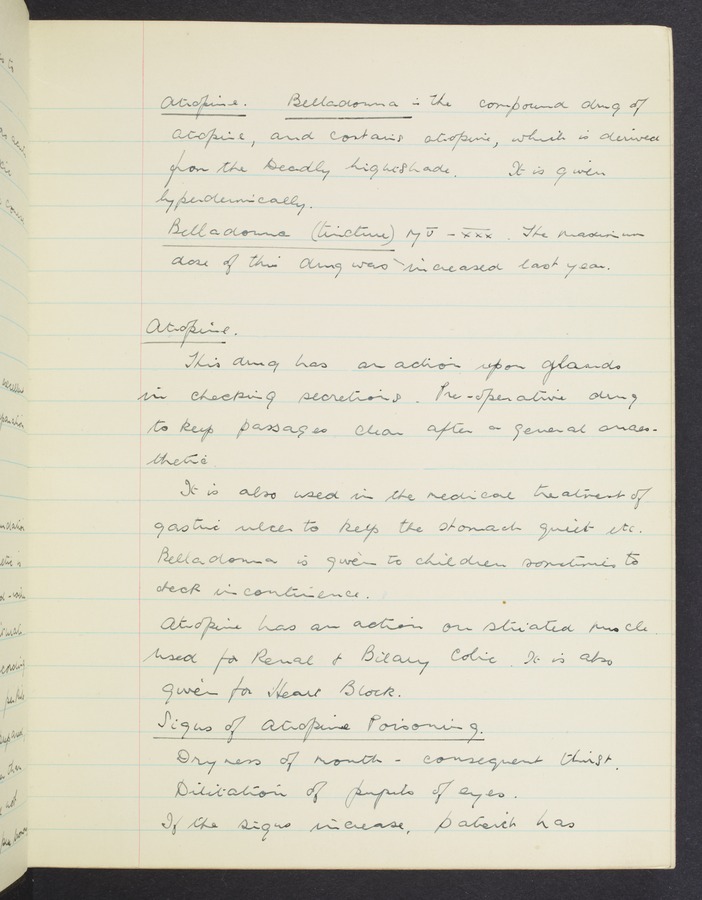 Atropine. Belladonna is the compound drug of
atopine, and contains atropine, which is derived
from the Deadly Nightshade. It is given
hyperdermically.
Belladonna (tincture) ♏ v̄ - x̄x̄x̄. The maximum
dose of this drug was increased last year.
Atropine.
This drug has an action upon glands
in checking secretions. Pre-operative drug
to keep passages clear after a general anaes-
thetic
It is also used in the medical treatment of
gastric ulcer to keep the stomach quiet etc.
Belladonna is given to children sometimes to
check incontinence.
Atropine has an action on striated muscle.
Used for Renal & Bilary Colic. It is also
given for Heart Block.
Signs of Atropine Poisoning.
Dryness of mouth - consequent thirst.
Dilitation of pupils of eyes.
If the signs increase, patient has